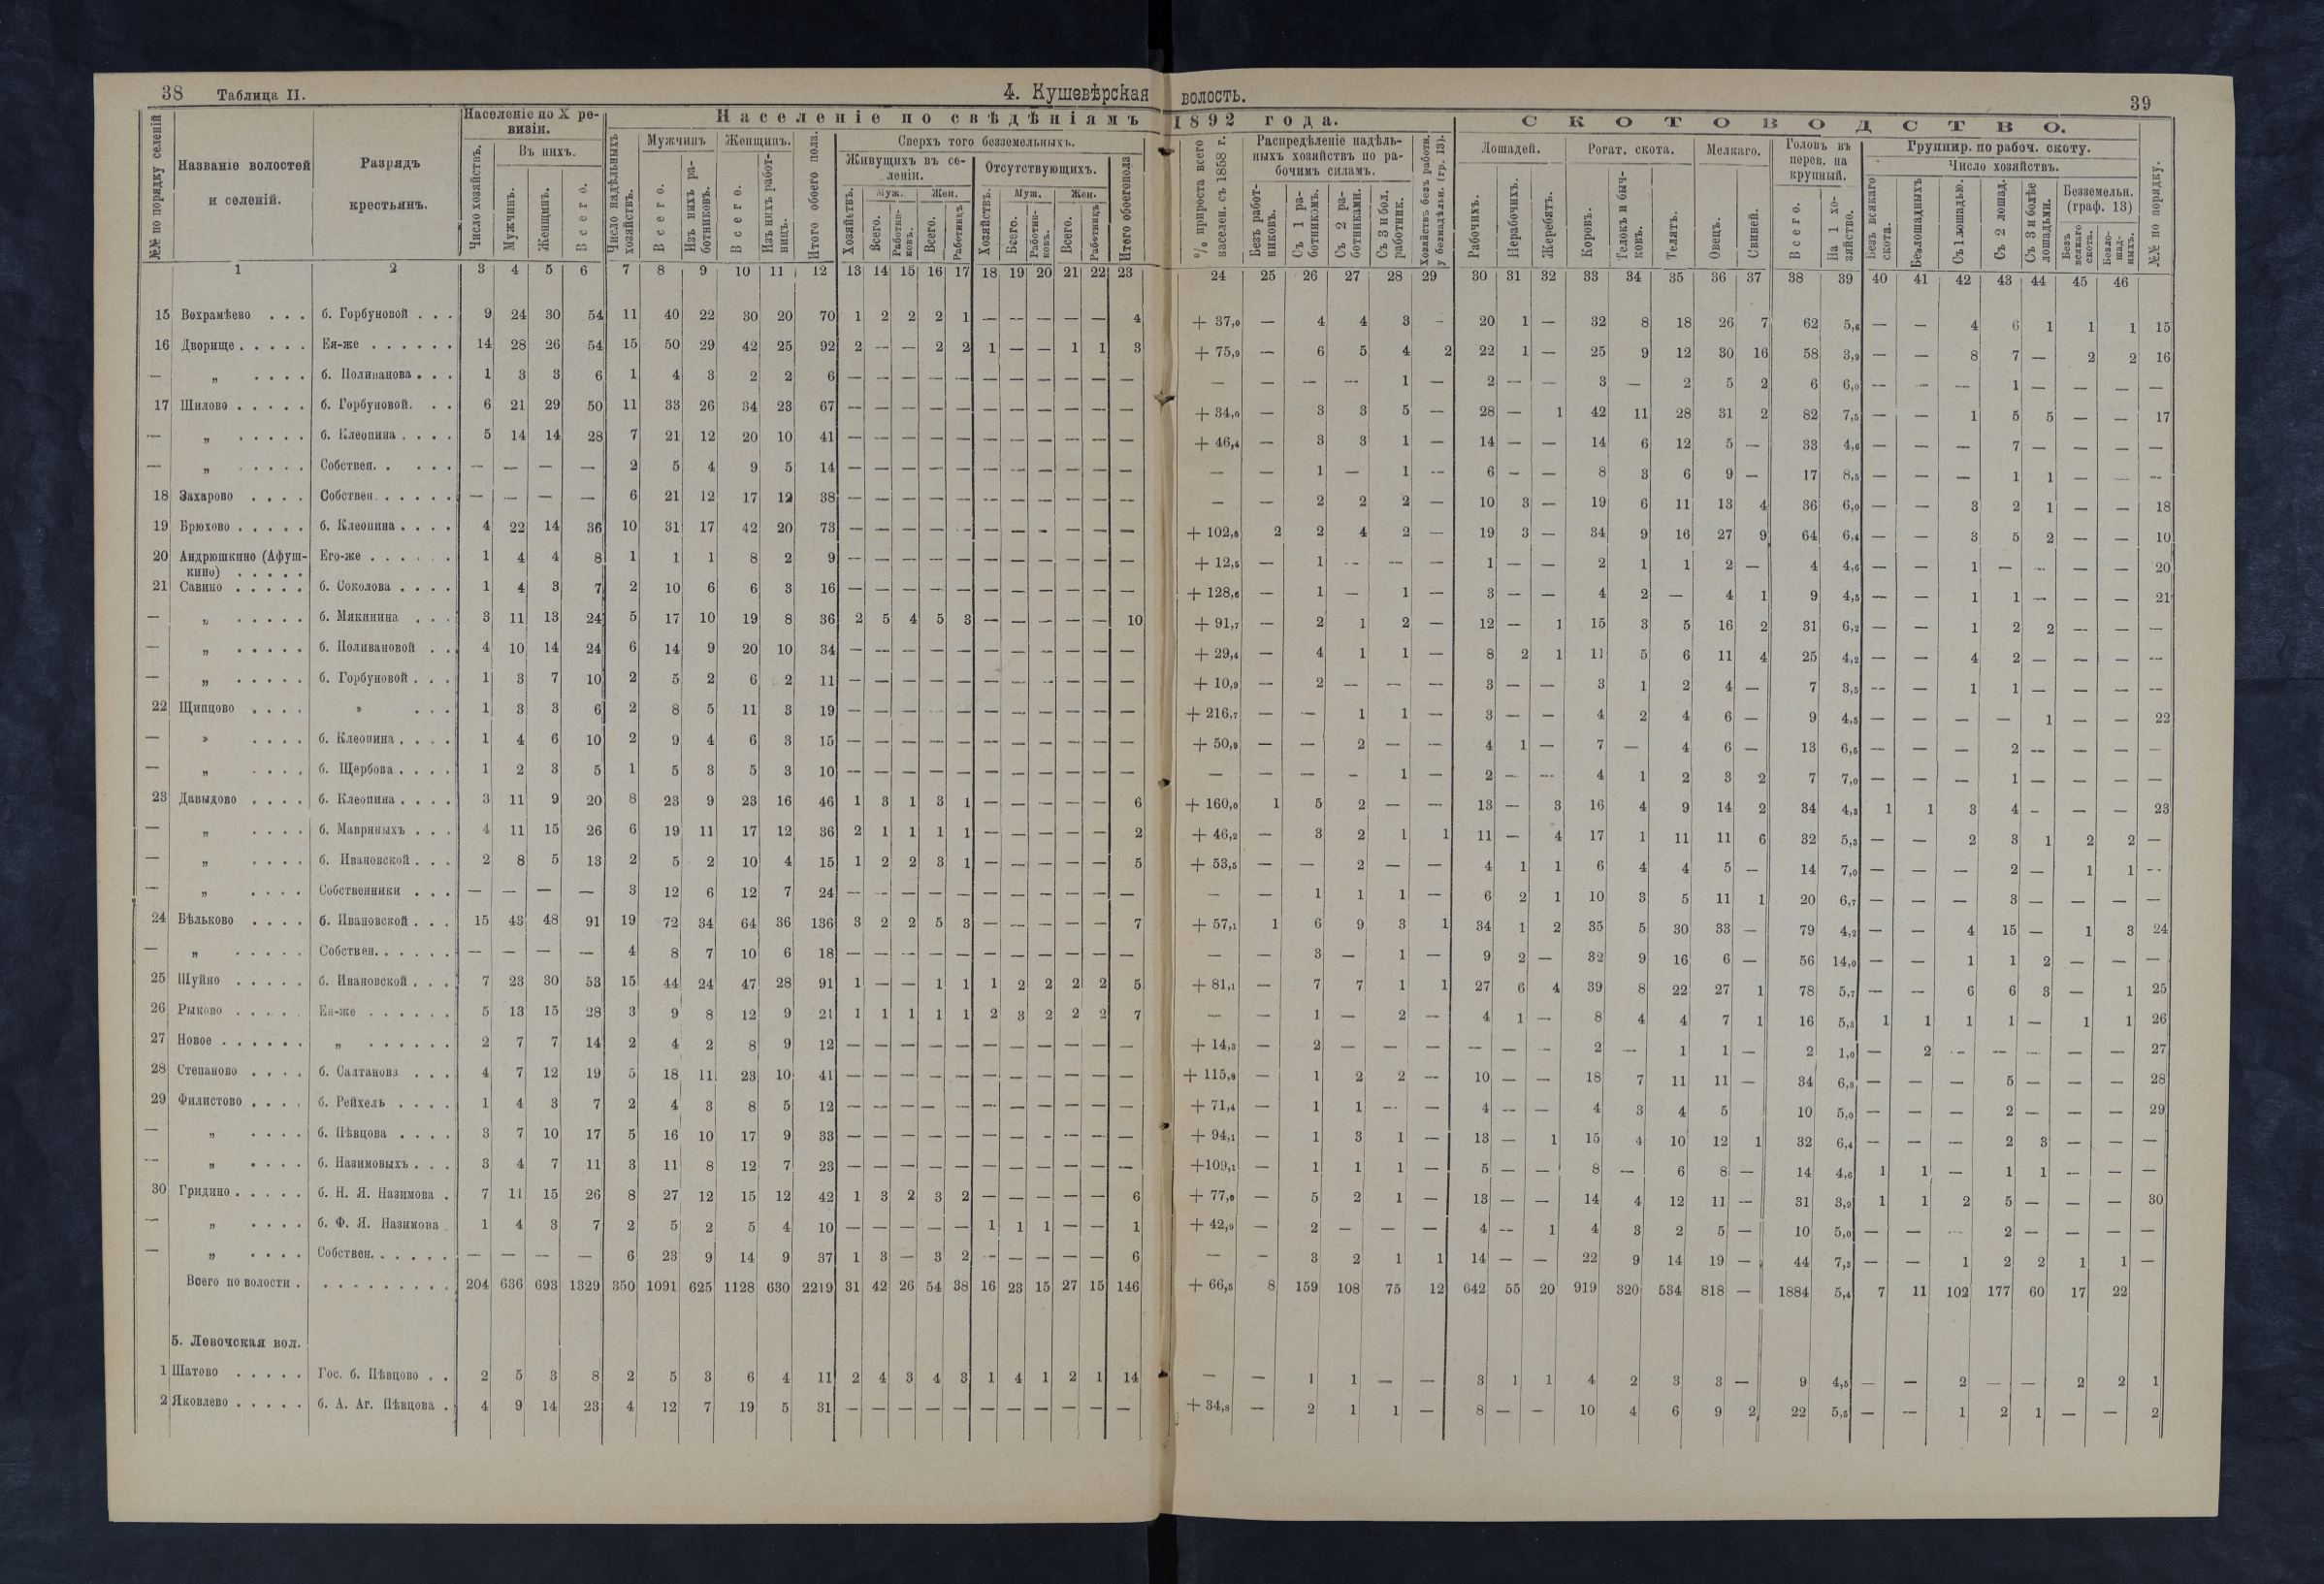 38 Таблица II. 4. Кушевѣрская волость. 39
№№ по порядку селеній
Названіе волостей и селеній.
Разрядъ крестьянъ.
Населеніе по X ревизіи.
Число хозяйствъ.
Въ нихъ.
Мужчинъ.
Женщинъ.
Всего.
Населеніе по свѣдѣніямъ 1892 года.
Число надѣльныхъ хозяйствъ.
Мужчинъ
Всего.
Изъ нихъ работниковъ.
Женщинъ.
Всего.
Изъ нихъ работницъ.
Итого обоего пола.
Сверхъ того безземельныхъ.
Живущихъ въ селеніи.
Хозяйствъ.
Муж.
Всего.
Работниковъ.
Жен.
Всего.
Работницъ
Отсутствующихъ.
Хозяйствъ.
Муж.
Всего.
Работниковъ.
Жен.
Всего.
Работницъ
Итого обоего пола
% прироста всего населен. съ 1858 г.
Распредѣленіе надѣльныхъ хозяйствъ по рабочимъ силамъ.
Безъ работниковъ.
Съ 1 работникомъ.
Съ 2 работниками.
Съ 3 и бол. работник.
Хозяйствъ безъ работн. у безнадѣльн. (гр. 13).
СКОТОВОДСТВО.
Лошадей.
Рабочихъ.
Нерабочихъ.
Жеребятъ.
Рогат. скота.
Коровъ.
Телокъ и бычковъ.
Телятъ.
Мелкаго.
Овецъ.
Свиней.
Головъ въ перев. на крупный.
Всего.
На 1 хозяйство.
Группир. по рабоч. скоту.
Число хозяйствъ.
Безъ всякаго скота.
Безлошадныхъ
Съ 1 лошадью.
Съ 2 лошад.
Съ 3 и болѣе лошадьми.
Безземельн. (граф. 13)
Безъ всякаго скота.
Безлошадныхъ.
№№ по порядку.
1 2 3 4 5 6 7 8 9 10 11 12 13 14 15 16 17 18 19 20 21 22 23 24 25 26 27 28 29 30 31 32 33 34 35 36 37 38 39 40 41 42 43 44 45 46
15 Вохрамѣево . . . б. Горбуновой . . . 9 24 30 54 11 40 22 30 20 70 1 2 2 2 1 — — — — — 4 + 37,0 — 4 4 3 - 20 1 — 32 8 18 26 7 62 5,6 — — 4 6 1 1 1 15
16 Дворище . . . . . Ея-же . . . . . . 14 28 26 54 15 50 29 42 25 92 2 — — 2 2 1 — — 1 1 3 + 75,9 — 6 5 4 2 22 1 — 25 9 12 30 16 58 3,9 — — 8 7 — 2 2 16
— „ . . . . б. Поливанова . . . 1 3 3 6 1 4 3 2 2 6 — — — — — — — — — — — — — — — 1 — 2 — — 3 — 2 5 2 6 6,0 — — — 1 — — — —
17 Шилово . . . . . б. Горбуновой. . . 6 21 29 50 11 33 26 34 23 67 — — — — — — — — — — — + 34,0 — 3 3 5 — 28 — 1 42 11 28 31 2 82 7,5 — — 1 5 5 — — 17
— „ . . . . . б. Клеопина . . . . 5 14 14 28 7 21 12 20 10 41 — — — — — — — — — — — + 46,4 — 3 3 1 — 14 — — 14 6 12 5 — 33 4,6 — — — 7 — — — —
— „ . . . . . Собствен. . . . . — — — — 2 5 4 9 5 14 — — — — — — — — — — — — — 1 — 1 — 6 — — 8 3 6 9 — 17 8,5 — — — 1 1 — — —
18 Захарово . . . . Собствен. . . . . . — — — — 6 21 12 17 12 38 — — — — — — — — — — — — — 2 2 2 — 10 3 — 19 6 11 13 4 36 6,0 — — 3 2 1 — — 18
19 Брюхово . . . . . б. Клеопина . . . . 4 22 14 36 10 31 17 42 20 73 — — — — — — — — — — — + 102,8 2 2 4 2 — 19 3 — 34 9 16 27 9 64 6,4 — — 3 5 2 — — 10
20 Андрюшкино (Афушкино) . . . . . Его-же . . . . . . 1 4 4 8 1 1 1 8 2 9 — — — — — — — — — — — + 12,5 — 1 — — — 1 — — 2 1 1 2 — 4 4,6 — — 1 — — — — 20
21 Савино . . . . . б. Соколова . . . . 1 4 3 7 2 10 6 6 3 16 — — — — — — — — — — — + 128,6 — 1 — 1 — 3 — — 4 2 — 4 1 9 4,5 — — 1 1 — — — 21
— „ . . . . . б. Мякинина . . . 3 11 13 24 5 17 10 19 8 36 2 5 4 5 3 — — — — — 10 + 91,7 — 2 1 2 — 12 — 1 15 3 5 16 2 31 6,2 — — 1 2 2 — — —
— „ . . . . . б. Поливановой . . 4 10 14 24 6 14 9 20 10 34 — — — — — — — — — — — + 29,4 — 4 1 1 — 8 2 1 11 5 6 11 4 25 4,2 — — 4 2 — — — —
— „ . . . . . б. Горбуновой . . . 1 3 7 10 2 5 2 6 2 11 — — — — — — — — — — — + 10,9 — 2 — — — 3 — — 3 1 2 4 — 7 3,5 — — 1 1 — — — —
22 Щипцово . . . . » . . . 1 3 3 6 2 8 5 11 3 19 — — — — — — — — — — — + 216,7 — — 1 1 — 3 — — 4 2 4 6 — 9 4,5 — — — — 1 — — 22
— » . . . . б. Клеопина . . . . 1 4 6 10 2 9 4 6 3 15 — — — — — — — — — — — + 50,9 — — 2 — — 4 1 — 7 — 4 6 — 13 6,5 — — — 2 — — — —
— „ . . . . б. Щербова . . . . 1 2 3 5 1 5 3 5 3 10 — — — — — — — — — — — — — — — 1 — 2 — — 4 1 2 3 2 7 7,0 — — — 1 — — — —
23 Давыдово . . . . б. Клеопина . . . . 3 11 9 20 8 23 9 23 16 46 1 3 1 3 1 — — — — — 6 + 160,0 1 5 2 — — 13 — 3 16 4 9 14 2 34 4,3 1 1 3 4 - — — 23
— „ . . . . б. Мавриныхъ . . . 4 11 15 26 6 19 11 17 12 36 2 1 1 1 1 — — — — — 2 + 46,2 — 3 2 1 1 11 — 4 17 1 11 11 6 32 5,3 — — 2 3 1 2 2 —
— „ . . . . б. Ивановской . . . 2 8 5 13 2 5 2 10 4 15 1 2 2 3 1 — — — — — 5 + 53,5 — — 2 — — 4 1 1 6 4 4 5 — 14 7,0 — — — 2 — 1 1 —
— „ . . . . Собственники . . . — — — — 3 12 6 12 7 24 — — — — — — — — — — — — — 1 1 1 — 6 2 1 10 3 5 11 1 20 6,7 — — — 3 — — — —
24 Бѣльково . . . . б. Ивановской . . . 15 43 48 91 19 72 34 64 36 136 3 2 2 5 3 — — — — — 7 + 57,1 1 6 9 3 1 34 1 2 35 5 30 33 — 79 4,2 — — 4 15 — 1 3 24
— „ . . . . . Собствен. . . . . . — — — — 4 8 7 10 6 18 — — — — — — — — — — — — — 3 — 1 — 9 2 — 32 9 16 6 — 56 14,0 — — 1 1 2 — — —
25 Шуйно . . . . . б. Ивановской . . . 7 23 30 53 15 44 24 47 28 91 1 — — 1 1 1 2 2 2 2 5 + 81,1 — 7 7 1 1 27 6 4 39 8 22 27 1 78 5,7 — — 6 6 3 — 1 25
26 Рыково . . . . . Ея-же . . . . . . 5 13 15 28 3 9 8 12 9 21 1 1 1 1 1 2 3 2 2 2 7 — — 1 — 2 — 4 1 — 8 4 4 7 1 16 5,3 1 1 1 1 — 1 1 26
27 Новое . . . . . . „ . . . . . . 2 7 7 14 2 4 2 8 9 12 — — — — — — — — — — — + 14,3 — 2 — — — — — — 2 — 1 1 — 2 1,0 — 2 — — — — — 27
28 Степаново . . . . б. Салтанова . . . 4 7 12 19 5 18 11 23 10 41 — — — — — — — — — — — + 115,8 — 1 2 2 — 10 — — 18 7 11 11 — 34 6,8 — — — 5 — — — 28
29 Филистово . . . . б. Рейхель . . . . 1 4 3 7 2 4 3 8 5 12 — — — — — — — — — — — + 71,4 — 1 1 — — 4 — — 4 3 4 5 10 5,0 — — — 2 — — — 29
— „ . . . . б. Пѣвцова . . . . 3 7 10 17 5 16 10 17 9 33 — — — — — — — — — — — + 94,1 — 1 3 1 — 13 — 1 15 4 10 12 1 32 6,4 — — — 2 3 — — —
— „ . . . . б. Назимовыхъ . . . 3 4 7 11 3 11 8 12 7 23 — — — — — — — — — — — +109,1 — 1 1 1 — 5 — — 8 — 6 8 — 14 4,6 1 1 — 1 1 — — —
30 Гридино . . . . . б. Н. Я. Назимова . 7 11 15 26 8 27 12 15 12 42 1 3 2 3 2 — — — — — 6 + 77,0 — 5 2 1 — 13 — — 14 4 12 11 — 31 3,9 1 1 2 5 — — — 30
— „ . . . . б. Ф. Я. Назимова . 1 4 3 7 2 5 2 5 4 10 — — — — — 1 1 1 — — 1 + 42,9 — 2 — — — 4 — 1 4 3 2 5 — 10 5,0 — — — 2 — — — —
— „ . . . . Собствен. . . . . . — — — — 6 23 9 14 9 37 1 3 — 3 2 — — — — — 6 — — 3 2 1 1 14 — — 22 9 14 19 — 44 7,3 — — 1 2 2 1 1 —
Всего по волости . . . . . . . . . . 204 636 693 1329 350 1091 625 1128 630 2219 31 42 26 54 38 16 23 15 27 15 146 + 66,5 8 159 108 75 12 642 55 20 919 320 534 818 — 1884 5,4 7 11 102 177 60 17 22
5. Левочская вол.
1 Шатово . . . . . Гос. б. Пѣвцово . . 2 5 3 8 2 5 3 6 4 11 2 4 3 4 3 1 4 1 2 1 14 — — 1 1 — — 3 1 1 4 2 3 3 — 9 4,5 — — 2 — — 2 2 1
2 Яковлево . . . . . б. А. Аг. Пѣвцова . 4 9 14 23 4 12 7 19 5 31 — — — — — — — — — — — + 34,8 — 2 1 1 — 8 — — 10 4 6 9 2 22 5,5 — — 1 2 1 — — 2